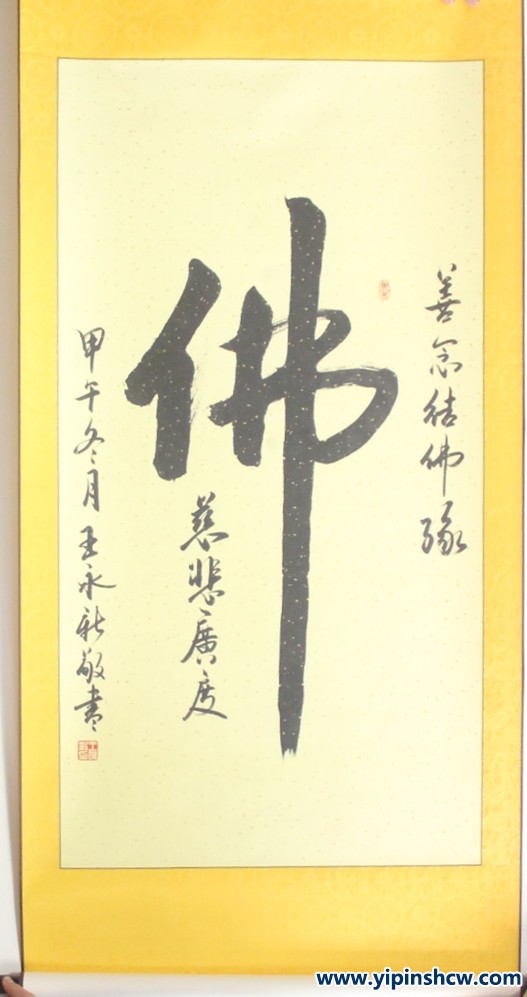 善念结佛缘
佛
慈悲廣度
甲午冬月王永新敬書
www.yipinshcw.com